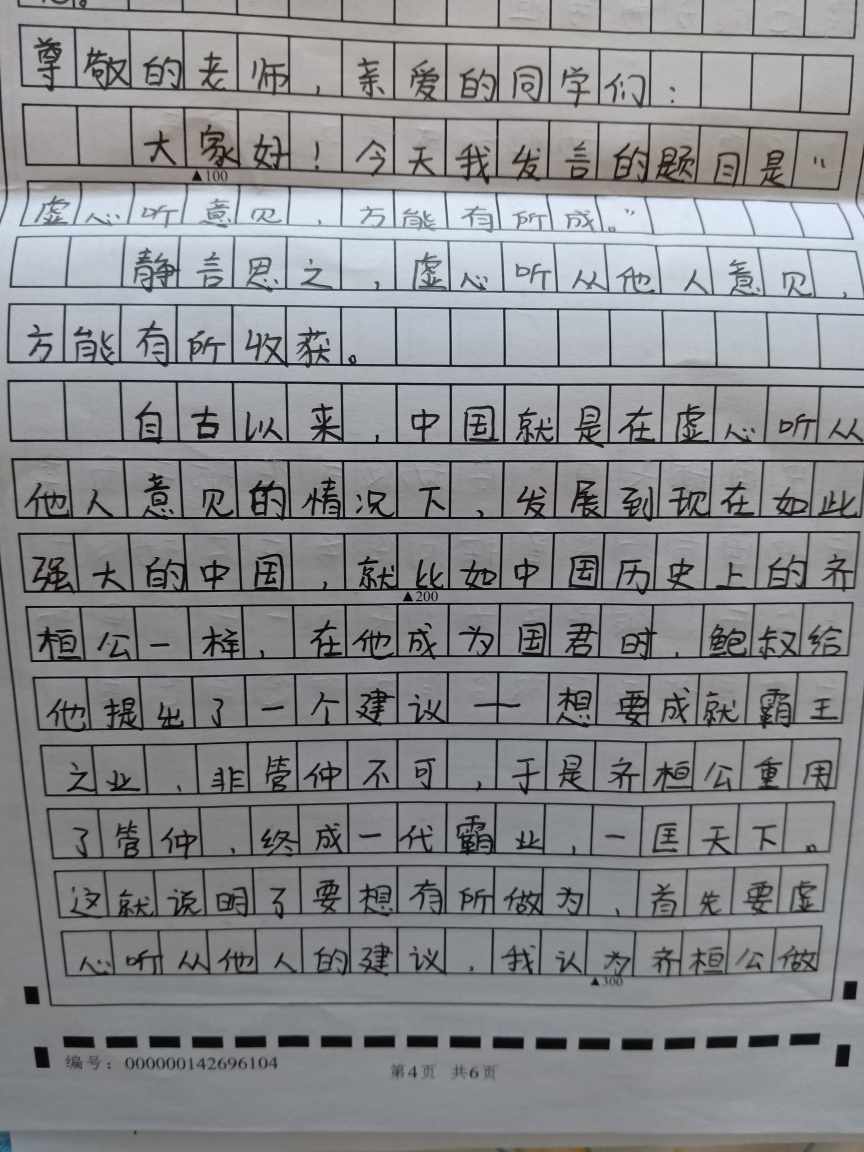 尊敬的老师,亲爱的同学们:
大家好!今天我发言的题目是“
▲100
虚心听意见,方能有所成。”
静言思之,虚心听从他人意见,
方能有所收获。
自古以来,中国就是在虚心听从
他人意见的情况下,发展到现在如此
强大的中国,就比如中国历史上的齐
▲200
桓公一样,在他成为国君时,鲍叔给
他提出了一个建议——想要成就霸王
之业,非管仲不可,于是齐桓公重用
了管仲,终成一代霸业,一匡天下。
这就说明了要想有所做为,首先要虚
心听从他人的建议,我认为齐桓公做
▲300
编号:000000142696104
第4页 共6页